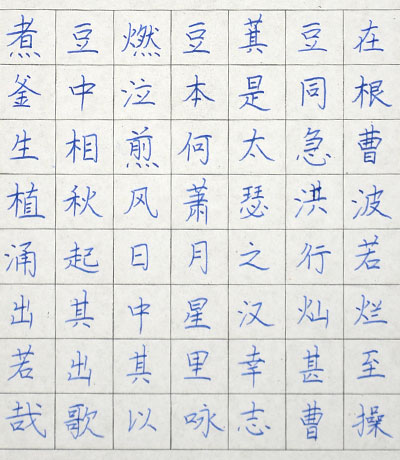 煮豆燃豆萁豆在
釜中泣本是同根
生相煎何太急曹
植秋风萧瑟洪波
涌起日月之行若
出其中星汉灿烂
若出其里幸甚至
哉歌以咏志曹操